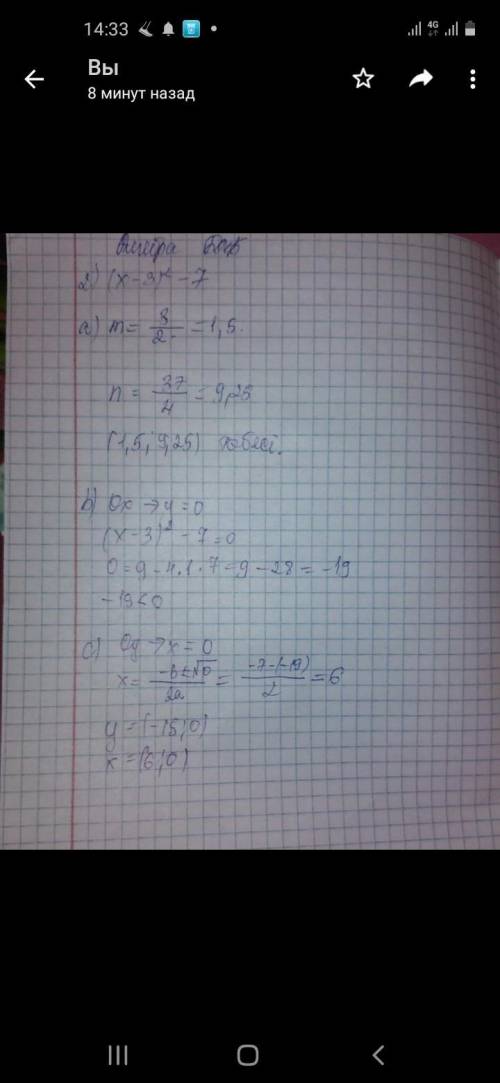 14:33
4G
Вы
8 минут назад
2) (x-3)² - 7
a) m = 8/2 = 1,5.
n = 37/4 = 9,25
(1,5; 9,25)
b) Ox → y = 0
(x-3)² - 7 = 0
D = 9 - 4·1·7 = 9 - 28 = -19
-19 < 0
c) Oy → x = 0
x = -b±√D/2a = -7-(-19)/2 = 6
y = (-15; 0)
x = (6; 0)